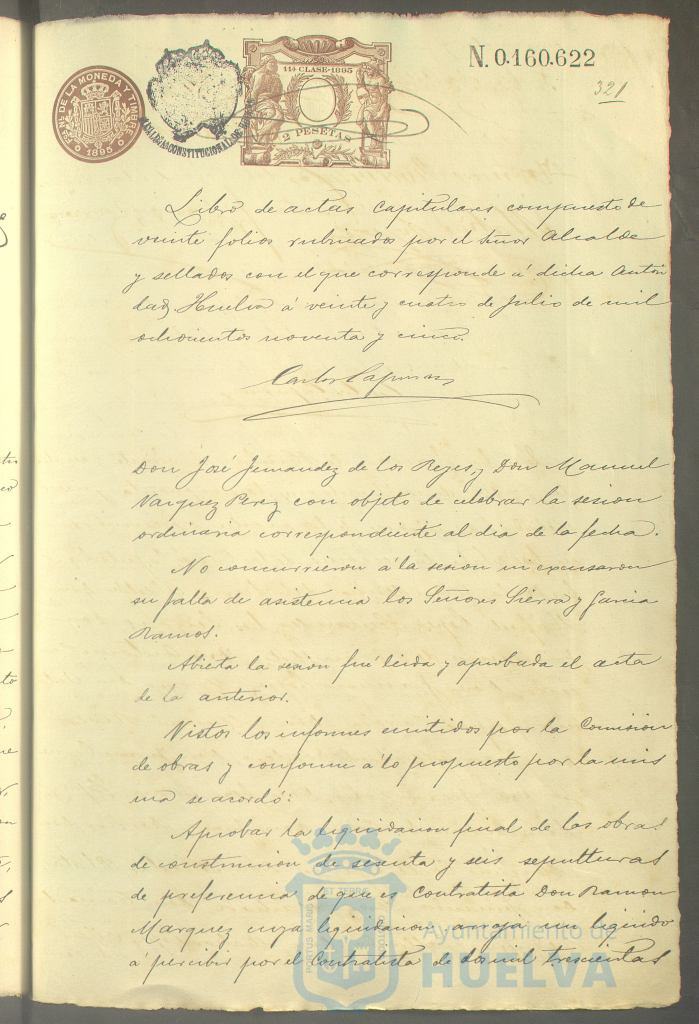 FCA. N. DE LA MONEDA Y TIMBRE
1895
ALCALDIA CONSTITUCIONAL DE HUELVA
11ª CLASE-1895
2 PESETAS
N. 0.160.622
321
Libro de actas capitulares compuesto de
veinte folios rubricados por el Señor Alcalde
y sellados con el que corresponde á dicha Autori
dad, Huelva á veinte y cuatro de Julio de mil
ochocientos noventa y cinco.
Carlos
Don José Fernandez de los Reyes, y Don Manuel
Vazquez Perez con objeto de celebrar la sesion
ordinaria correspondiente al dia de la fecha.
No concurrieron á la sesion ni excusaron
su falta de asistencia los Señores Sierra y Garcia
Ramos.
Abierta la sesion fué leida y aprobada el acta
de la anterior.
Vistos los informes emitidos por la Comision
de obras y conforme á lo propuesto por la mis
ma se acordó:
Aprobar la liquidacion final de las obras
de construccion de sesenta y seis sepulturas
de preferencia de que es Contratista Don Ramon
Marquez cuya liquidacion arroja un liquido
á percibir por el Contratista de dos mil trescientas
PORTUS MARIS ET TERRAE CUSTODIA
Ayuntamiento de
HUELVA